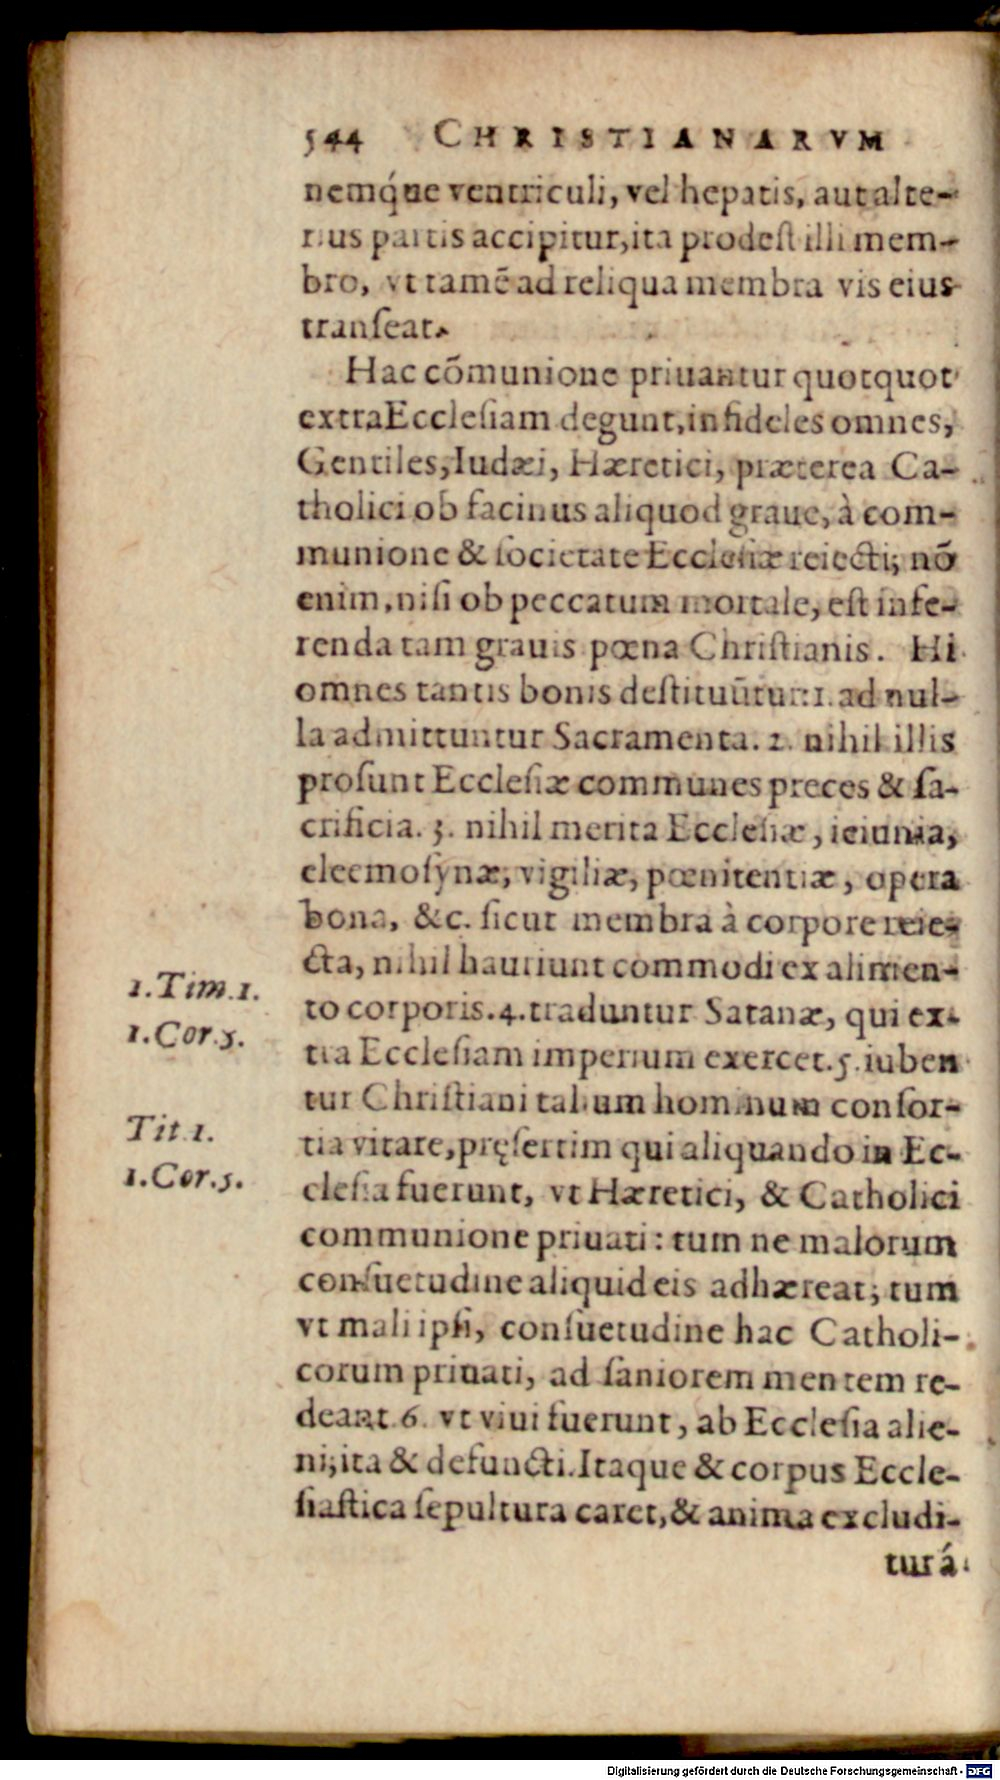 544 CHRISTIANARVM
nemq́ue ventriculi, vel hepatis, aut alte-
rius partis accipitur, ita prodest illi mem-
bro, vt tamẽ ad reliqua membra vis eius
transeat.
Hac cõmunione priuantur quotquot
extra Ecclesiam degunt, infideles omnes,
Gentiles, Iudæi, Hæretici, præterea Ca-
tholici ob facinus aliquod graue, à com-
munione & societate Ecclesiæ reiecti; nõ
enim, nisi ob peccatum mortale, est infe-
renda tam grauis pœna Christianis. Hi
omnes tantis bonis destituũtur: 1. ad nul-
la admittuntur Sacramenta. 2. nihil illis
prosunt Ecclesiæ communes preces & sa-
crificia. 3. nihil merita Ecclesiæ, ieiunia,
eleemosynæ, vigiliæ, pœnitentiæ, opera
bona, &c. sicut membra à corpore reie-
cta, nihil hauriunt commodi ex alimen-
1.Tim.1. to corporis. 4. traduntur Satanæ, qui ex-
1.Cor.5. tra Ecclesiam imperium exercet. 5. iuben
tur Christiani talium hominum consor-
Tit 1. tia vitare, pręsertim qui aliquando in Ec-
1.Cor.5. clesia fuerunt, vt Hæretici, & Catholici
communione priuati: tum ne malorum
consuetudine aliquid eis adhæreat; tum
vt mali ipsi, consuetudine hac Catholi-
corum priuati, ad saniorem mentem re-
deant 6. vt viui fuerunt, ab Ecclesia alie-
ni, ita & defuncti. Itaque & corpus Eccle-
siastica sepultura caret, & anima excludi-
tur á
Digitalisierung gefördert durch die Deutsche Forschungsgemeinschaft - DFG